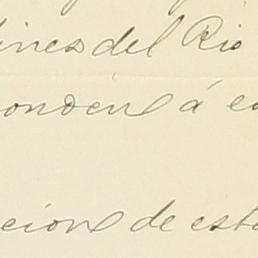 ines del Rio
onden á es
cion de esta